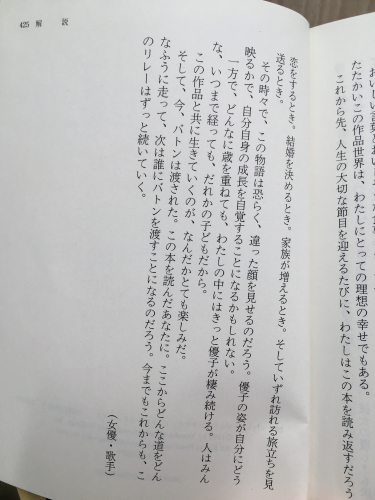 おいしい言葉とおいし
たたかいこの作品世界は、わたしにとっての理想の幸せでもある。
これから先、人生の大切な節目を迎えるたびに、わたしはこの本を読み返すだろう。
恋をするとき。結婚を決めるとき。家族が増えるとき。そしていずれ訪れる旅立ちを見
送るとき。
その時々で、この物語は恐らく、違った顔を見せるのだろう。優子の姿が自分にどう
映るかで、自分自身の成長を自覚することになるかもしれない。
一方で、どんなに歳を重ねても、わたしの中にはきっと優子が棲み続ける。人はみん
な、いつまで経っても、だれかの子どもだから。
この作品と共に生きていくのが、なんだかとても楽しみだ。
そして、今、バトンは渡された。この本を読んだあなたに。ここからどんな道をどん
なふうに走って、次は誰にバトンを渡すことになるのだろう。今までもこれからも、こ
のリレーはずっと続いていく。
（女優・歌手）
425 解 説